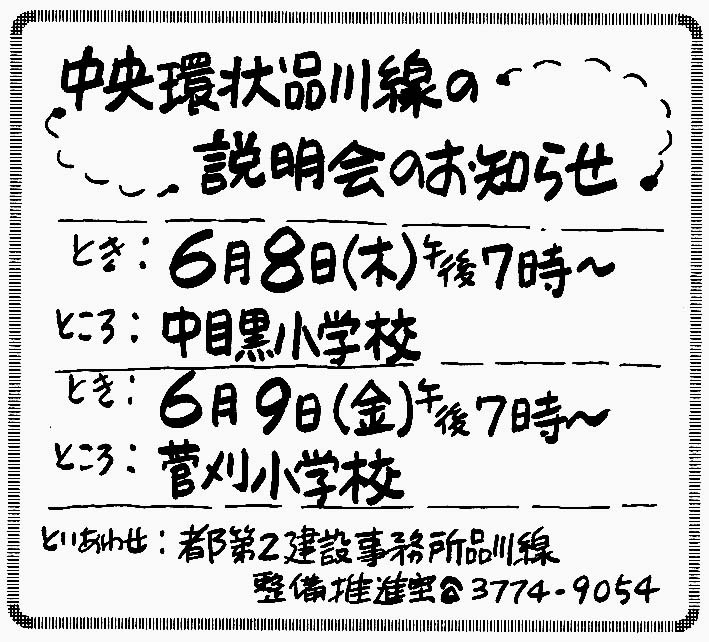 中央環状品川線の
説明会のお知らせ
とき：6月8日(木)午後7時〜
ところ：中目黒小学校
とき：6月9日(金)午後7時〜
ところ：菅刈小学校
といあわせ：都第2建設事務所品川線
整備推進室☎3774-9054